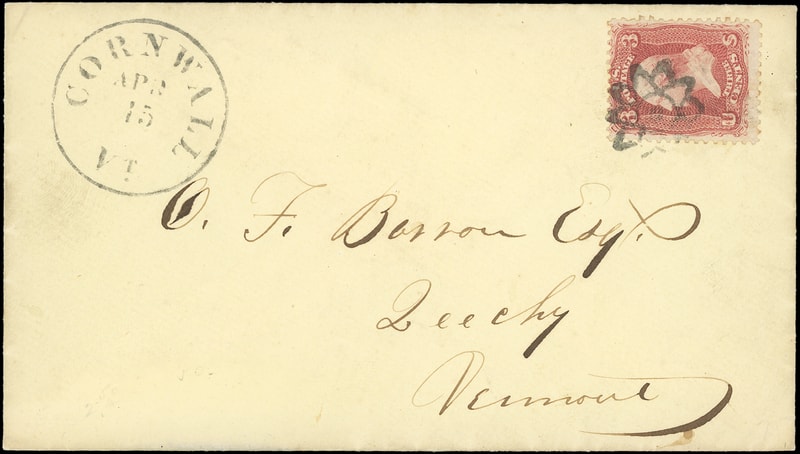 CORNWALL
APR
15
VT.
3 3
U S
POSTAGE
THREE CENTS
O. F. Barron Esq.
Qeechy
Vermont